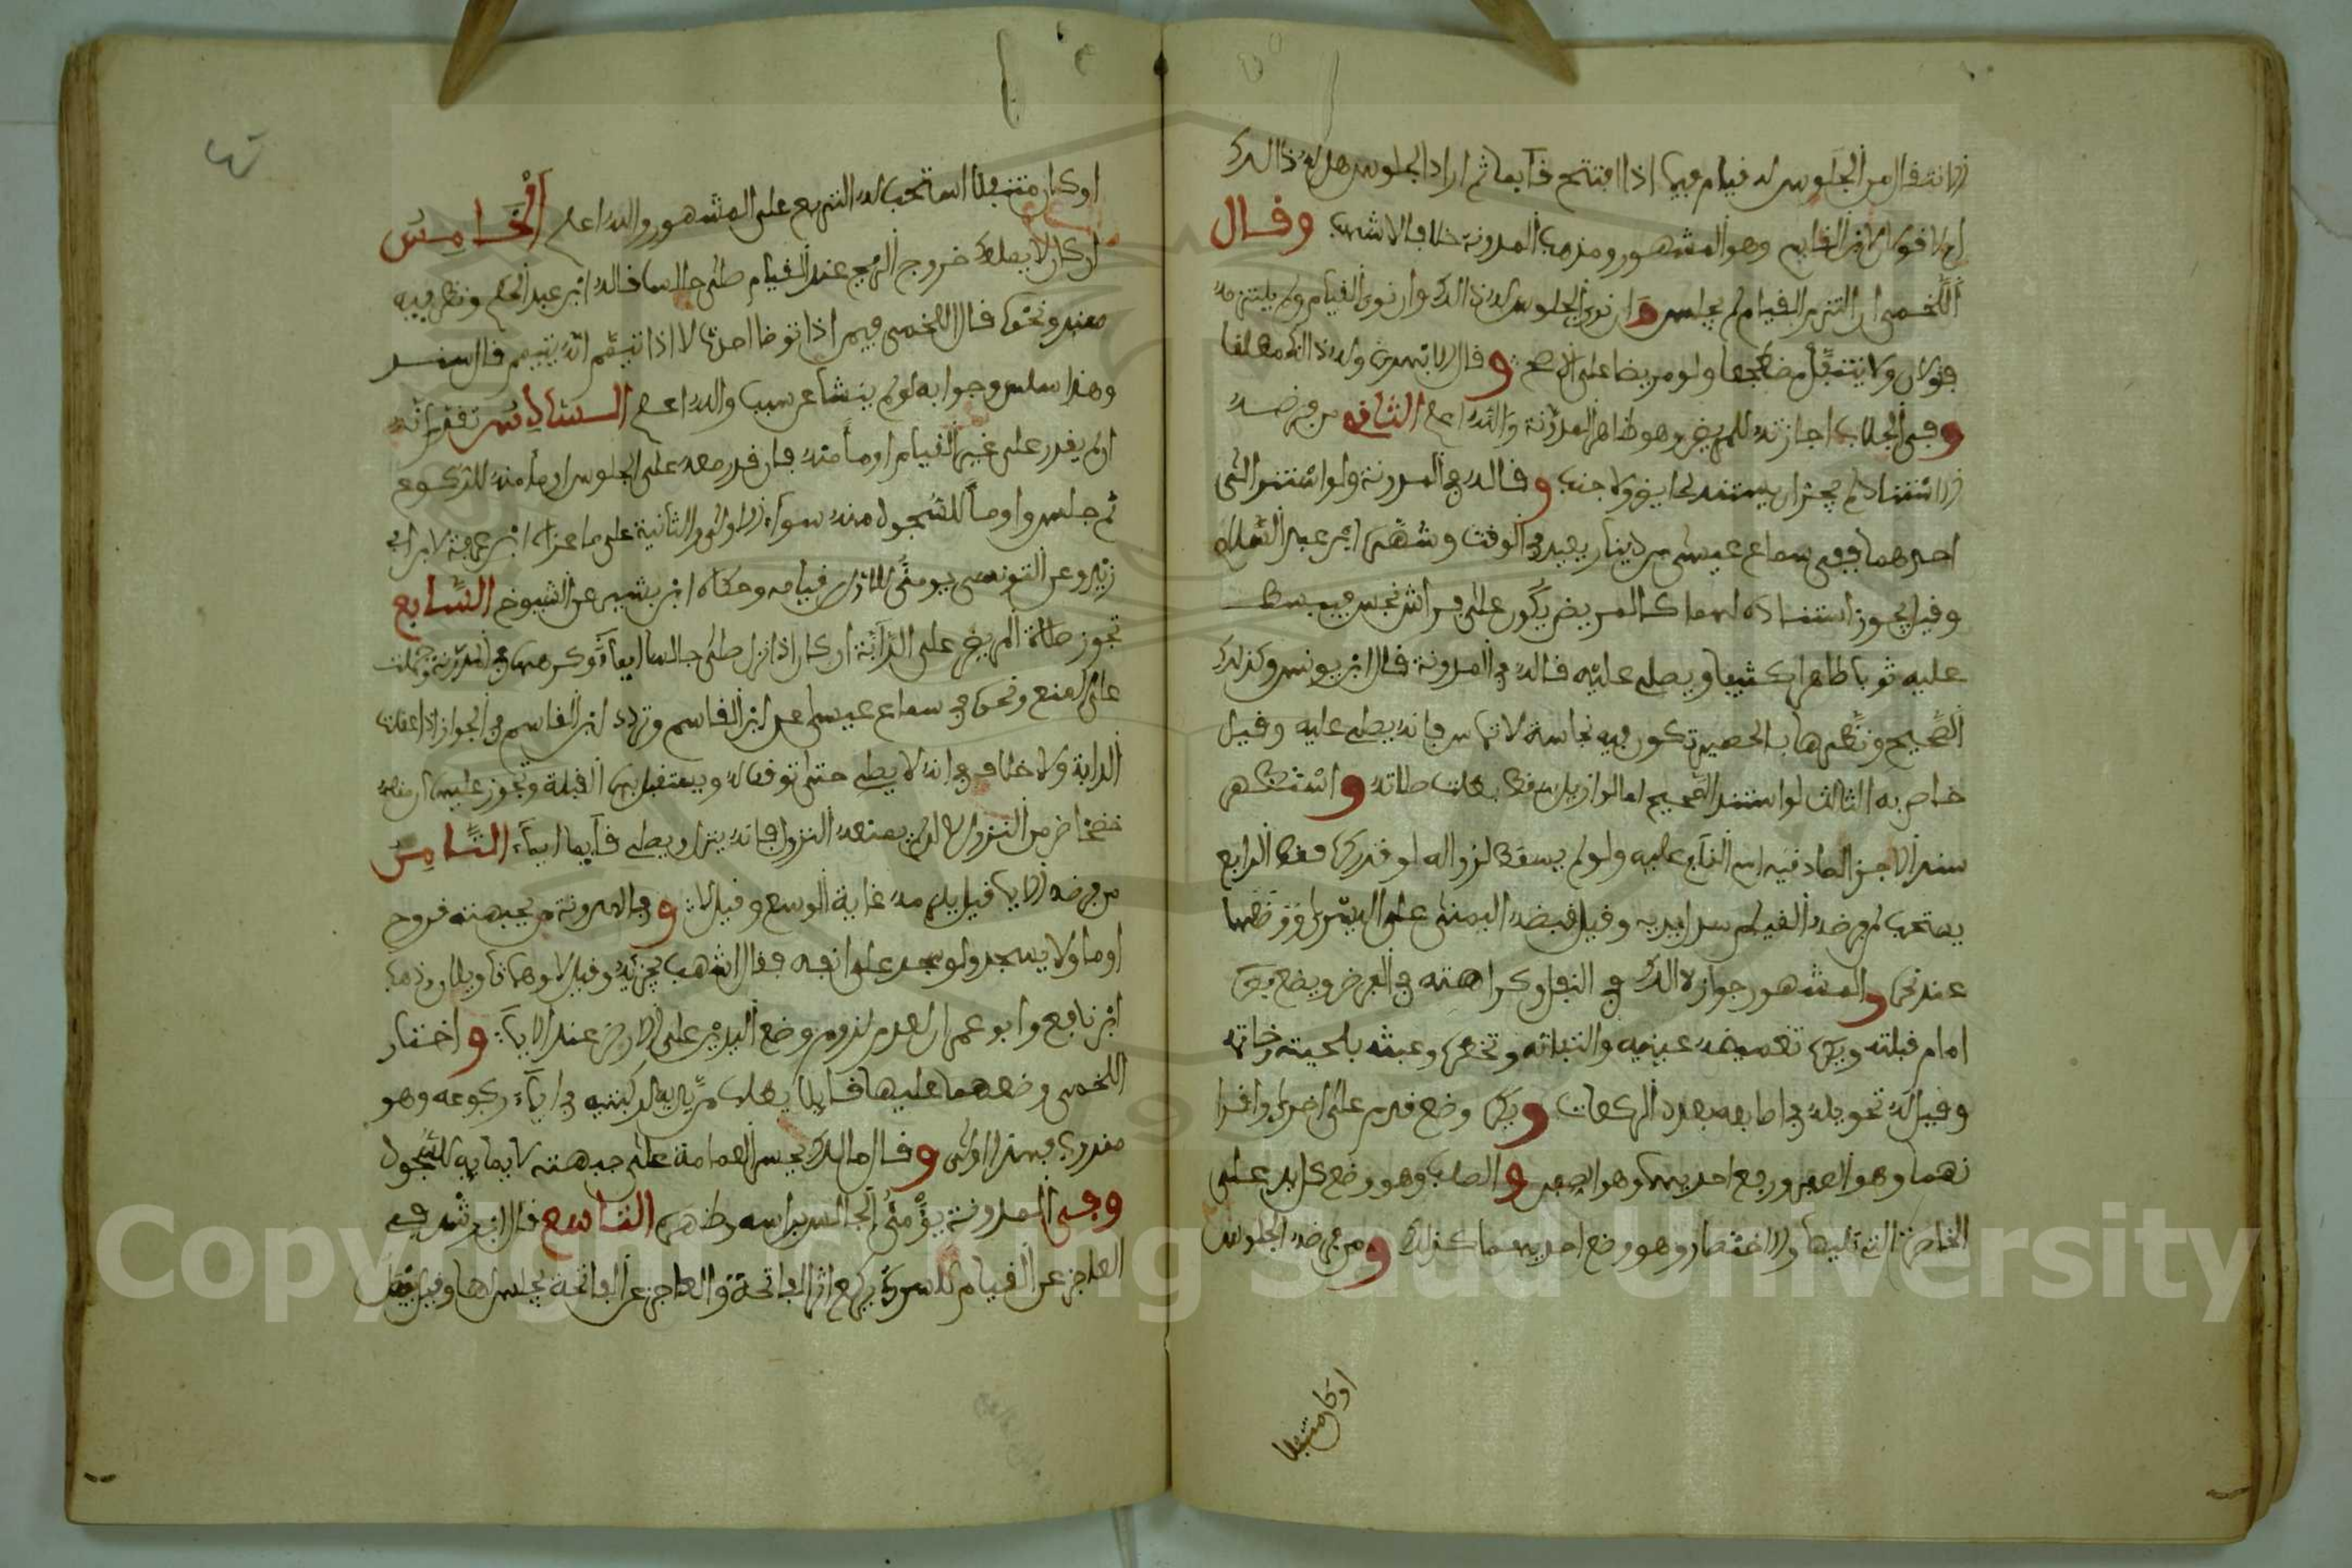 الانتقال من الجلوس له قيام فيها اذا افتتح قائما ثم اراد الجلوس هل له ذالك
ام لا قولان لابن القاسم وهو المشهور ومذهب المدونة خلافا لاشهب وقال
اللخمي ان التزم القيام لم يجلس وان نوى الجلوس له ذالك وان نوى القيام ولم يلتزمه
فقولان ولا يتنفل مضطجعا ولو مريضا على الاصح وقال الابهري وله ذالك مطلقا
وفي الجلاب اجازته للمريض وهو ظاهر المدونة والله اعلم الثاني من فرضه
الاستناد لم يجز ان يستند لحايض ولا جنب وقاله في المدونة ولو استند الى
احدهما ففي سماع عيسى بن دينار يعيد في الوقت وشهره ابن عبد السلام
وقيل يجوز استناده لهما كالمريض يكون على فراش نجس فيبسط
عليه ثوبا طاهرا كثيفا ويصلي عليه قاله في المدونة قال ابن يونس وكذلك
الصحيح ونظيرها الحصير تكون فيه نجاسة لا تماس فانه يصلي عليه وقيل
خاص به الثالث لو استند الصحيح لما لو ازيل سقط بطلت صلاته واستظهر
سند الاجزا لصادقية اسم القايم عليه ولو لم يسقط لزواله لو قدر كره فقط الرابع
يستحب لمن فرضه القيام سدل يديه وقيل قبضه اليمنى على اليسرى فوقهما
عند نحره والمشهور جواز ذالك في النفل وكراهته في الفرض ويضع بصره
امام قبلته ويكره تغميضه عينيه والتفاته وتخصره وعبثه بلحيته وخاتمه
وقيل له تحويله في اصابعه بعدد الركعات ويكره وضع قدم على اخرى واقرا
نهما وهو الصفن ورفع احديهما وهو الصفد والصلب وهو وضع كل يد على
الخاصرة التي تليها والاختصار وهو وضع احديهما كذلك ومن فرضه الجلوس
اوكان متنفلا
اوكان متنفلا استحب له التربع على المشهور والله اعلم الخامس
ان كان لا يملك خروج الريح عند القيام صلى جالسا قاله ابن عبد الحكم ونظر فيه
سند ونحوه قال اللخمي فيمن اذا توضا احدث لا اذا تيمم انه يتيمم قال سند
وهذا سلس وجوابه لو لم ينشا عن سبب والله اعلم السادس تقدم انه
ان لم يقدر على غير القيام اومأ منه فان قدر معه على الجلوس اومأ منه للركوع
ثم جلس واومأ للسجود منه سواء الاولى والثانية على ما عزاه ابن عرفة لابن ابي
زيد وعن التونسي يومئ للاولى قيامه وحكاه ابن بشير عن الاشيوخ السابع
تجوز صلاة المريض على الدابة ان كان اذا نزل صلى جالسا ايماء وكرهها في المدونة وحملت
على المنع ونحوه في سماع عيسى عن ابن القاسم وتردد ابن القاسم في الجواز اذا عقلت
الدابة ولا خلاف في انه لا يصلي حتى توقف له ويستقبل بها القبلة وتجوز عليها ان منعه
خضخاض من النزول الا ان لم يمنعه النزول فانه ينزل ويصلي قائما ايماء الثامن
من فرضه الايماء قيل يلزمه غاية الوسع وقيل لا وفي المدونة من بجبهته قروح
اومأ ولا يسجد ولو سجد على انفه فقال اشهب يجزيه وقيل لا وهما تاويلان ومذهب
ابن نافع وابو عمران لعدم لزوم وضع اليدين على الارض عند الايماء واختار
اللخمي وضعهما عليها قايلا يضع يديه لركبتيه في ايماء ركوعه وهو
مندوب في الاولى وقال مالك يحسر العمامة على جبهته لايمايه للسجود
وفي المدونة يومئ الجالس براسه وظهره التاسع قال ابن رشد في
العاجز عن القيام للسورة يركع اثر الفاتحة والعاجز عن الفاتحة يجلس لها وقيل يصل